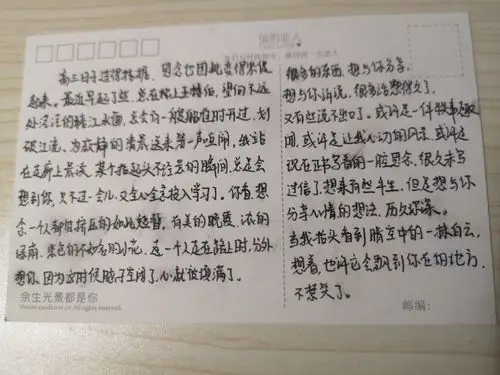 高三日子过得拮据,思念也因此变得紧促
起来。最近早起了些,总在晚上去操场,望向不远
处泛泛的赣江水面,总会有一艘船准时开过,划
破江流,为寂静的清晨送来第一声鸣,我站
在走廊上晨读,某个抬起头不经意的瞬间,总是会
想到你,只不过一会儿,又全心全意投入学习了。你看,想
念一个人都得挤压的如此短暂,有美的晚霞、浓的
绿荫、紫色的不知名的小花,这一个人走在路上时,另外
想你,因为这时候脑子空闲了,心就被填满了。
余生光景都是你
All rights reserved.
很多的东西,想与你分享,
想与你诉说,很多话想得久了
又有些说不出口。或许是一件轶事趣
闻,或许是让我心动的风景,或许是
现在正书写着的一腔思念,很久未写
过信了,想来有些生,但是想与你
分享心情的想法,历久弥深。
当我抬头看到晴空中的一抹白云,
想着,也许它会飘到你在的地方,
不禁笑了。
邮编: